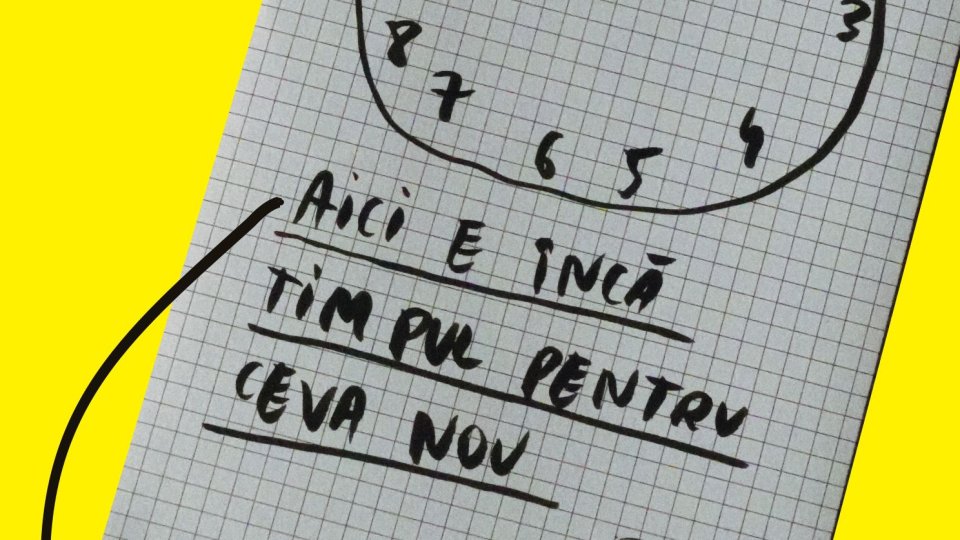 8
3
7
6
5
4
Aici E ÎNCĂ
TiMPUL PENTRU
CEVA NOU